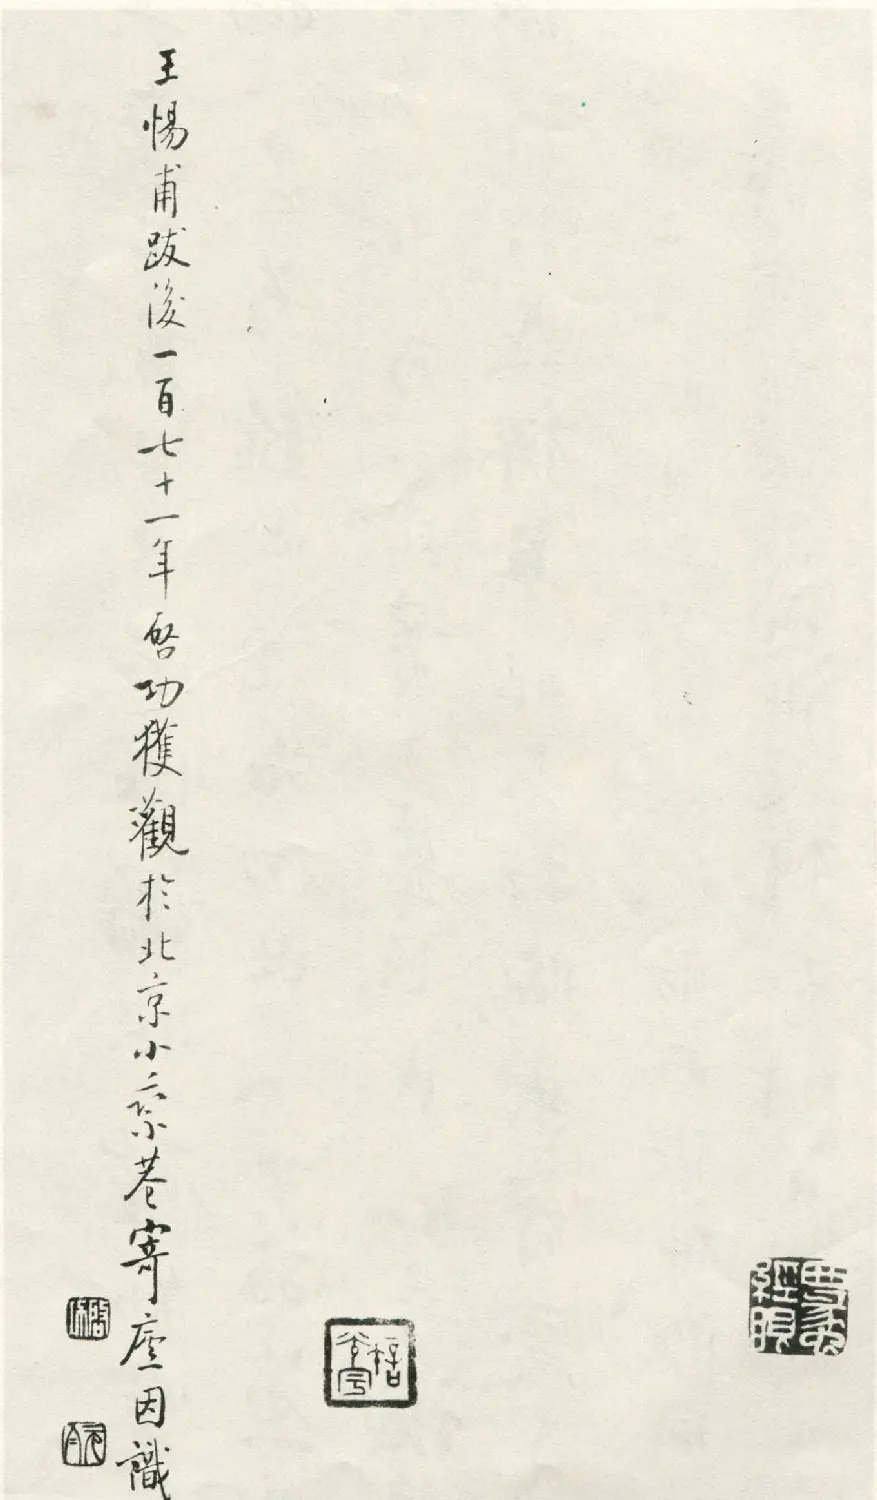 王惕甫跋後一百七十一年啓功獲觀於北京小乘巷寄廬因識